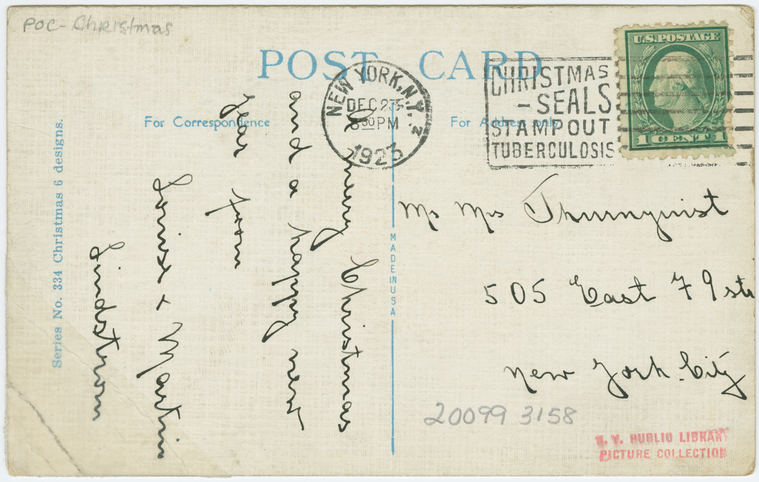 POC-Christmas
POST CARD
U.S. POSTAGE
1 CENT 1
NEW YORK, N.Y. 2
DEC 23
8 30 PM
1923
CHRISTMAS
-SEALS
STAMP OUT
TUBERCULOSIS
For Correspondence
For Address only
A merry Christmas
and a happy new
year from
Louise & Martin
Lindstrom
Series No. 334 Christmas 6 designs.
MADE IN USA
Mr Mrs Thurnquist
505 East 79 str
New York. City
20099 3158
N. Y. PUBLIC LIBRARY
PICTURE COLLECTION